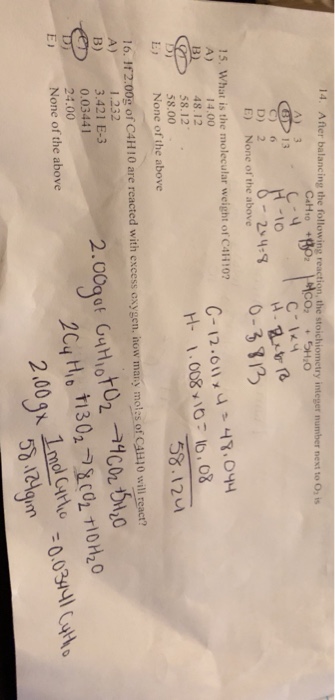 14. After balancing the following reaction, the stoichiometry integer number next to O₂ is
C4H10 + O2 4CO2 + 5H2O
A) 3
B) 13
C) 6
D) 2
E) None of the above
C-4
H-10
C-1x4
15. What is the molecular weight of C4H10?
A) 14.00
B) 48.12
58.12
D) 58.00
E) None of the above
C-12.011 x 4 = 48.044
H- 1.008 x 10 = 10.08
58.124
16. If 2.00g of C4H10 are reacted with excess oxygen, how many mols of C4H10 will react?
A) 1.232
B) 3.421 E-3
C) 0.03441
D) 24.00
E) None of the above
2.00g of C4H10 + O2 → 4CO2 + 5H2O
2C4H10 + 13O2 → 8CO2 + 10H2O
2.00g x 1 mol C4H10 = 0.03441 C4H10
58.124g